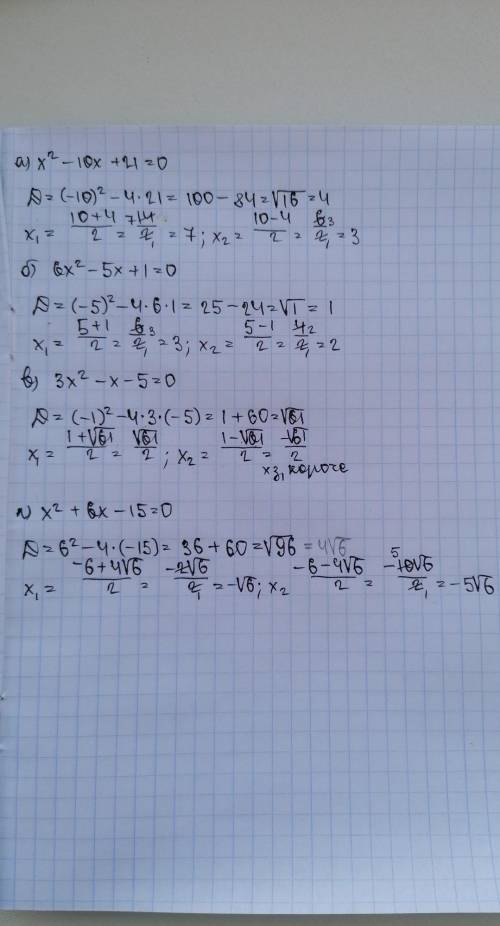 а) x² − 10x + 21 = 0
D = (−10)² − 4·21 = 100 − 84 = √16 = 4
x₁ = (10+4)/2 = 14/2 = 7; x₂ = (10−4)/2 = 6/2 = 3
б) 6x² − 5x + 1 = 0
D = (−5)² − 4·6·1 = 25 − 24 = √1 = 1
x₁ = (5+1)/2 = 6/2 = 3; x₂ = (5−1)/2 = 4/2 = 2
в) 3x² − x − 5 = 0
D = (−1)² − 4·3·(−5) = 1 + 60 = √61
x₁ = (1+√61)/2 = √61/2; x₂ = (1−√61)/2 = −√61/2
хз, короче
г) x² + 6x − 15 = 0
D = 6² − 4·(−15) = 36 + 60 = √96 = 4√6
x₁ = (−6+4√6)/2 = −2√6/2 = −√6; x₂ (−6−4√6)/2 = −10√6/2 = −5√6